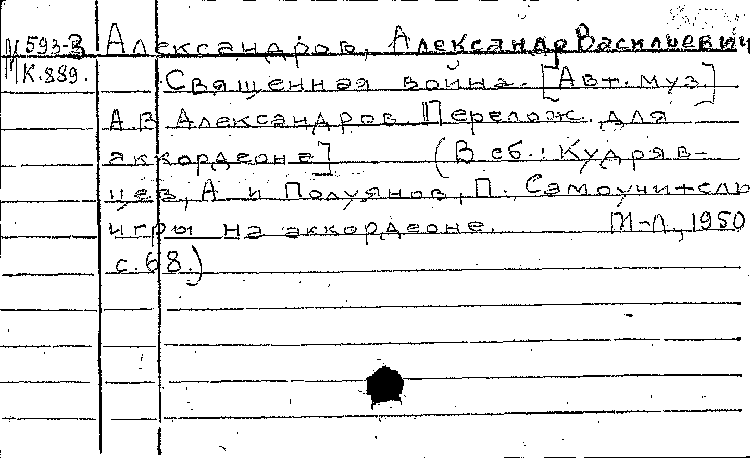 М 593-3 Александров, Александр Василиевич
К.889. Священная война. [Авт. муз.]
А.В. Александров Перелож. для
аккордеона] (В сб.: Кудряв-
цев, А и Полуянов, П. Самоучитель
игры на аккордеоне. М-Л, 1950
с. 68.)